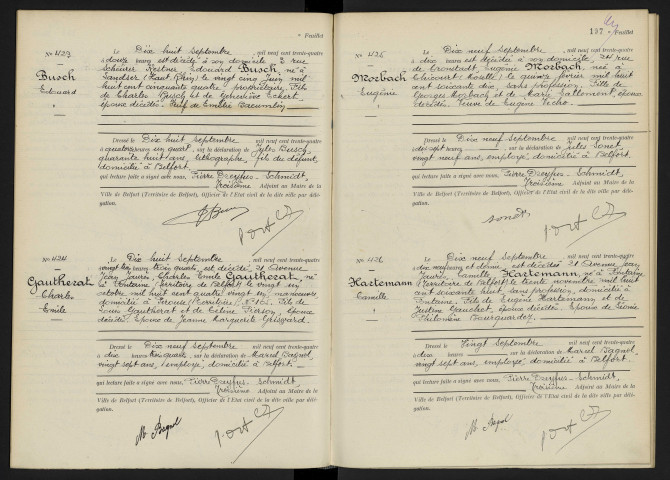 Feuillet
N° 423
Busch
Edouard
Le Dix huit Septembre, mil neuf cent trente-quatre
à douze heures est décédé à son domicile 2 rue
Scheurer Kestner Edouard Busch, né à
Landser (Haut Rhin) le vingt cinq Juin mil
huit cent cinquante quatre, propriétaire, Fils
de Charles Busch et de Catherine Eckert,
époux décédés. Veuf de Emélie Baeumlin
Dressé le Dix huit Septembre, mil neuf cent trente-quatre
à quatorze heures un quart, sur la déclaration de Jules Busch,
quarante huit ans, lithographe, fils du défunt,
domicilié à Belfort,
qui lecture faite a signé avec nous, Pierre Dreyfus-Schmidt,
Troisième Adjoint au Maire de la
Ville de Belfort (Territoire de Belfort), Officier de l'Etat civil de la dite ville par délé-
gation.
N° 424
Gautherat
Charles
Emile
Le Dix huit Septembre, mil neuf cent trente-quatre
vingt trois heures trois quarts, est décédé 21 Avenue
Jean Jaurès, Charles Emile Gautherat, né
à Fontaine (Territoire de Belfort) le vingt un
octobre mil huit cent quatre vingt un, manœuvre
domicilié à Perouse (Territoire) N° 162. Fils de
Louis Gautherat et de Celine Fierson, époux
décédés. Epoux de Jeanne Marguerite Grisvard.
Dressé le Dix neuf Septembre, mil neuf cent trente-quatre
à dix heures trois quarts, sur la déclaration de Marcel Bagnol,
vingt sept ans, employé, domicilié à Belfort.
qui lecture faite a signé avec nous, Pierre Dreyfus-Schmidt,
Troisième Adjoint au Maire de la
Ville de Belfort (Territoire de Belfort), Officier de l'Etat civil de la dite ville par délé-
gation.
M Bagnol
197
Feuillet
N° 425
Morbach
Eugénie
Le Dix neuf Septembre, mil neuf cent trente-quatre
à deux heures est décédée à son domicile, 24 rue
de Cronstadt Eugénie Morbach, née à
Chicourt (Moselle) le quinze février mil huit
cent soixante dix, sans profession. Fille de
Georges Morbach et de Marie Hallemont, époux
décédés. Veuve de Eugène Techo.
Dressé le Dix neuf Septembre, mil neuf cent trente-quatre
à dix sept heures, sur la déclaration de Jules Sonet,
vingt neuf ans, employé, domicilié à Belfort
qui lecture faite a signé avec nous, Pierre Dreyfus-Schmidt,
Troisième Adjoint au Maire de la
Ville de Belfort (Territoire de Belfort), Officier de l'Etat civil de la dite ville par délé-
gation.
sonet
N° 426
Hartemann
Camille
Le Dix neuf Septembre, mil neuf cent trente-quatre
à dix neuf heures et demie, est décédé 21 Avenue Jean
Jaurès, Camille Hartemann, né à Fontaine
(Territoire de Belfort) le trente novembre mil huit
cent soixante huit, sans profession, domicilié à
Fontaine. Fils de Eugène Hartemann et de
Justine Gauchet, époux décédés. Epoux de Léonie
Philomène Bourquardez.
Dressé le Vingt Septembre, mil neuf cent trente-quatre
à dix heures, sur la déclaration de Marcel Bagnol,
vingt sept ans, employé, domicilié à Belfort.
qui lecture faite a signé avec nous, Pierre Dreyfus-Schmidt,
Troisième Adjoint au Maire de la
Ville de Belfort (Territoire de Belfort), Officier de l'Etat civil de la dite ville par délé-
gation.
M Bagnol